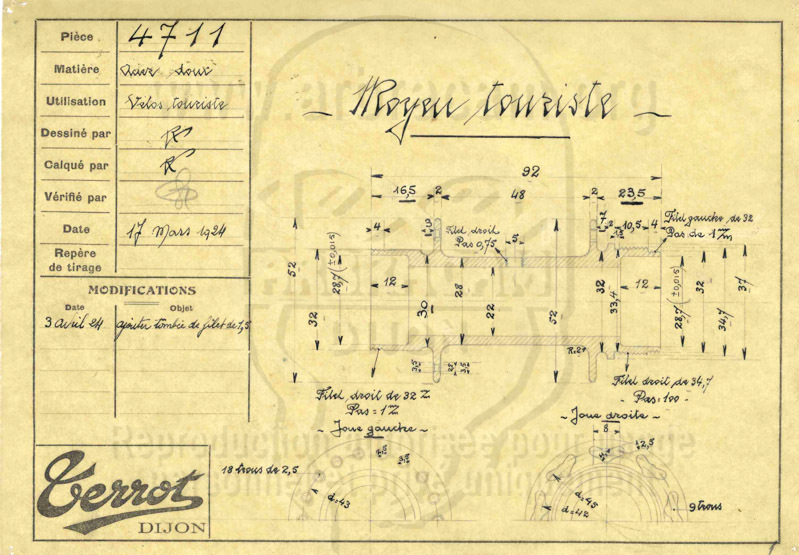 Pièce 4711
Matière Acier doux
Utilisation Vélos touriste
Dessiné par R
Calqué par R
Vérifié par
Date 17 Mars 1924
Repère
de tirage
MODIFICATIONS
Date Objet
3 avril 24 ajouter tombée de filet de 1,5
Terrot
DIJON
- Moyeu touriste -
92
16,5 2 48 2 23,5
4
Filet droit
Pas 0,75
10,5 4
Filet gauche de 32
Pas de 1 Z
52
32
28,7 (±0,015)
12
30
28
22
52
32
33,4
12
28,7 (±0,015)
32
34,7
37
R.2
Filet droit de 32 Z
Pas = 1 Z
- Joue gauche -
Filet droit de 34,7
- Pas: 100 -
- Joue droite -
8
2,5
18 trous de 2,5
d=43
d=45
d=42
9 trous
Reproduction autorisée pour usage
personnel et privé uniquement